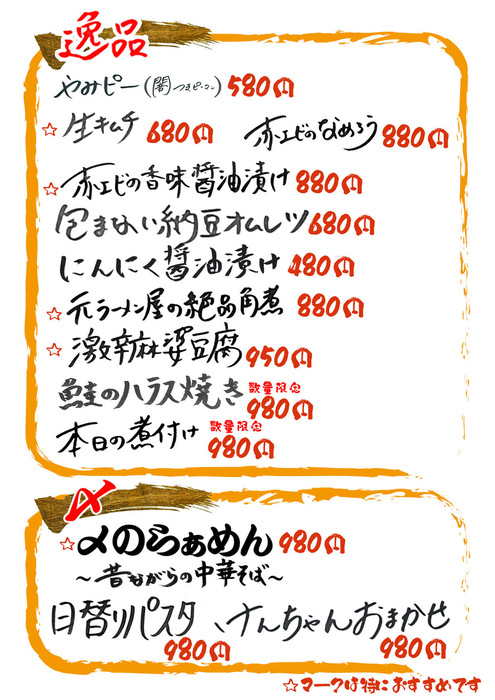 逸品
やみピー(闇つまピーマン) 580円
☆生キムチ 680円 赤エビのなめろう 880円
☆赤エビの香味醤油漬け 880円
包まない納豆オムレツ 680円
にんにく醤油漬け 480円
☆元ラーメン屋の絶品角煮 880円
☆激辛麻婆豆腐 950円
鮭のハラス焼き 数量限定 980円
本日の煮付け 数量限定 980円
〆
☆〆のらぁめん 980円
〜昔ながらの中華そば〜
日替りパスタ けんちゃんおまかせ
980円 980円
☆マークは特におすすめです